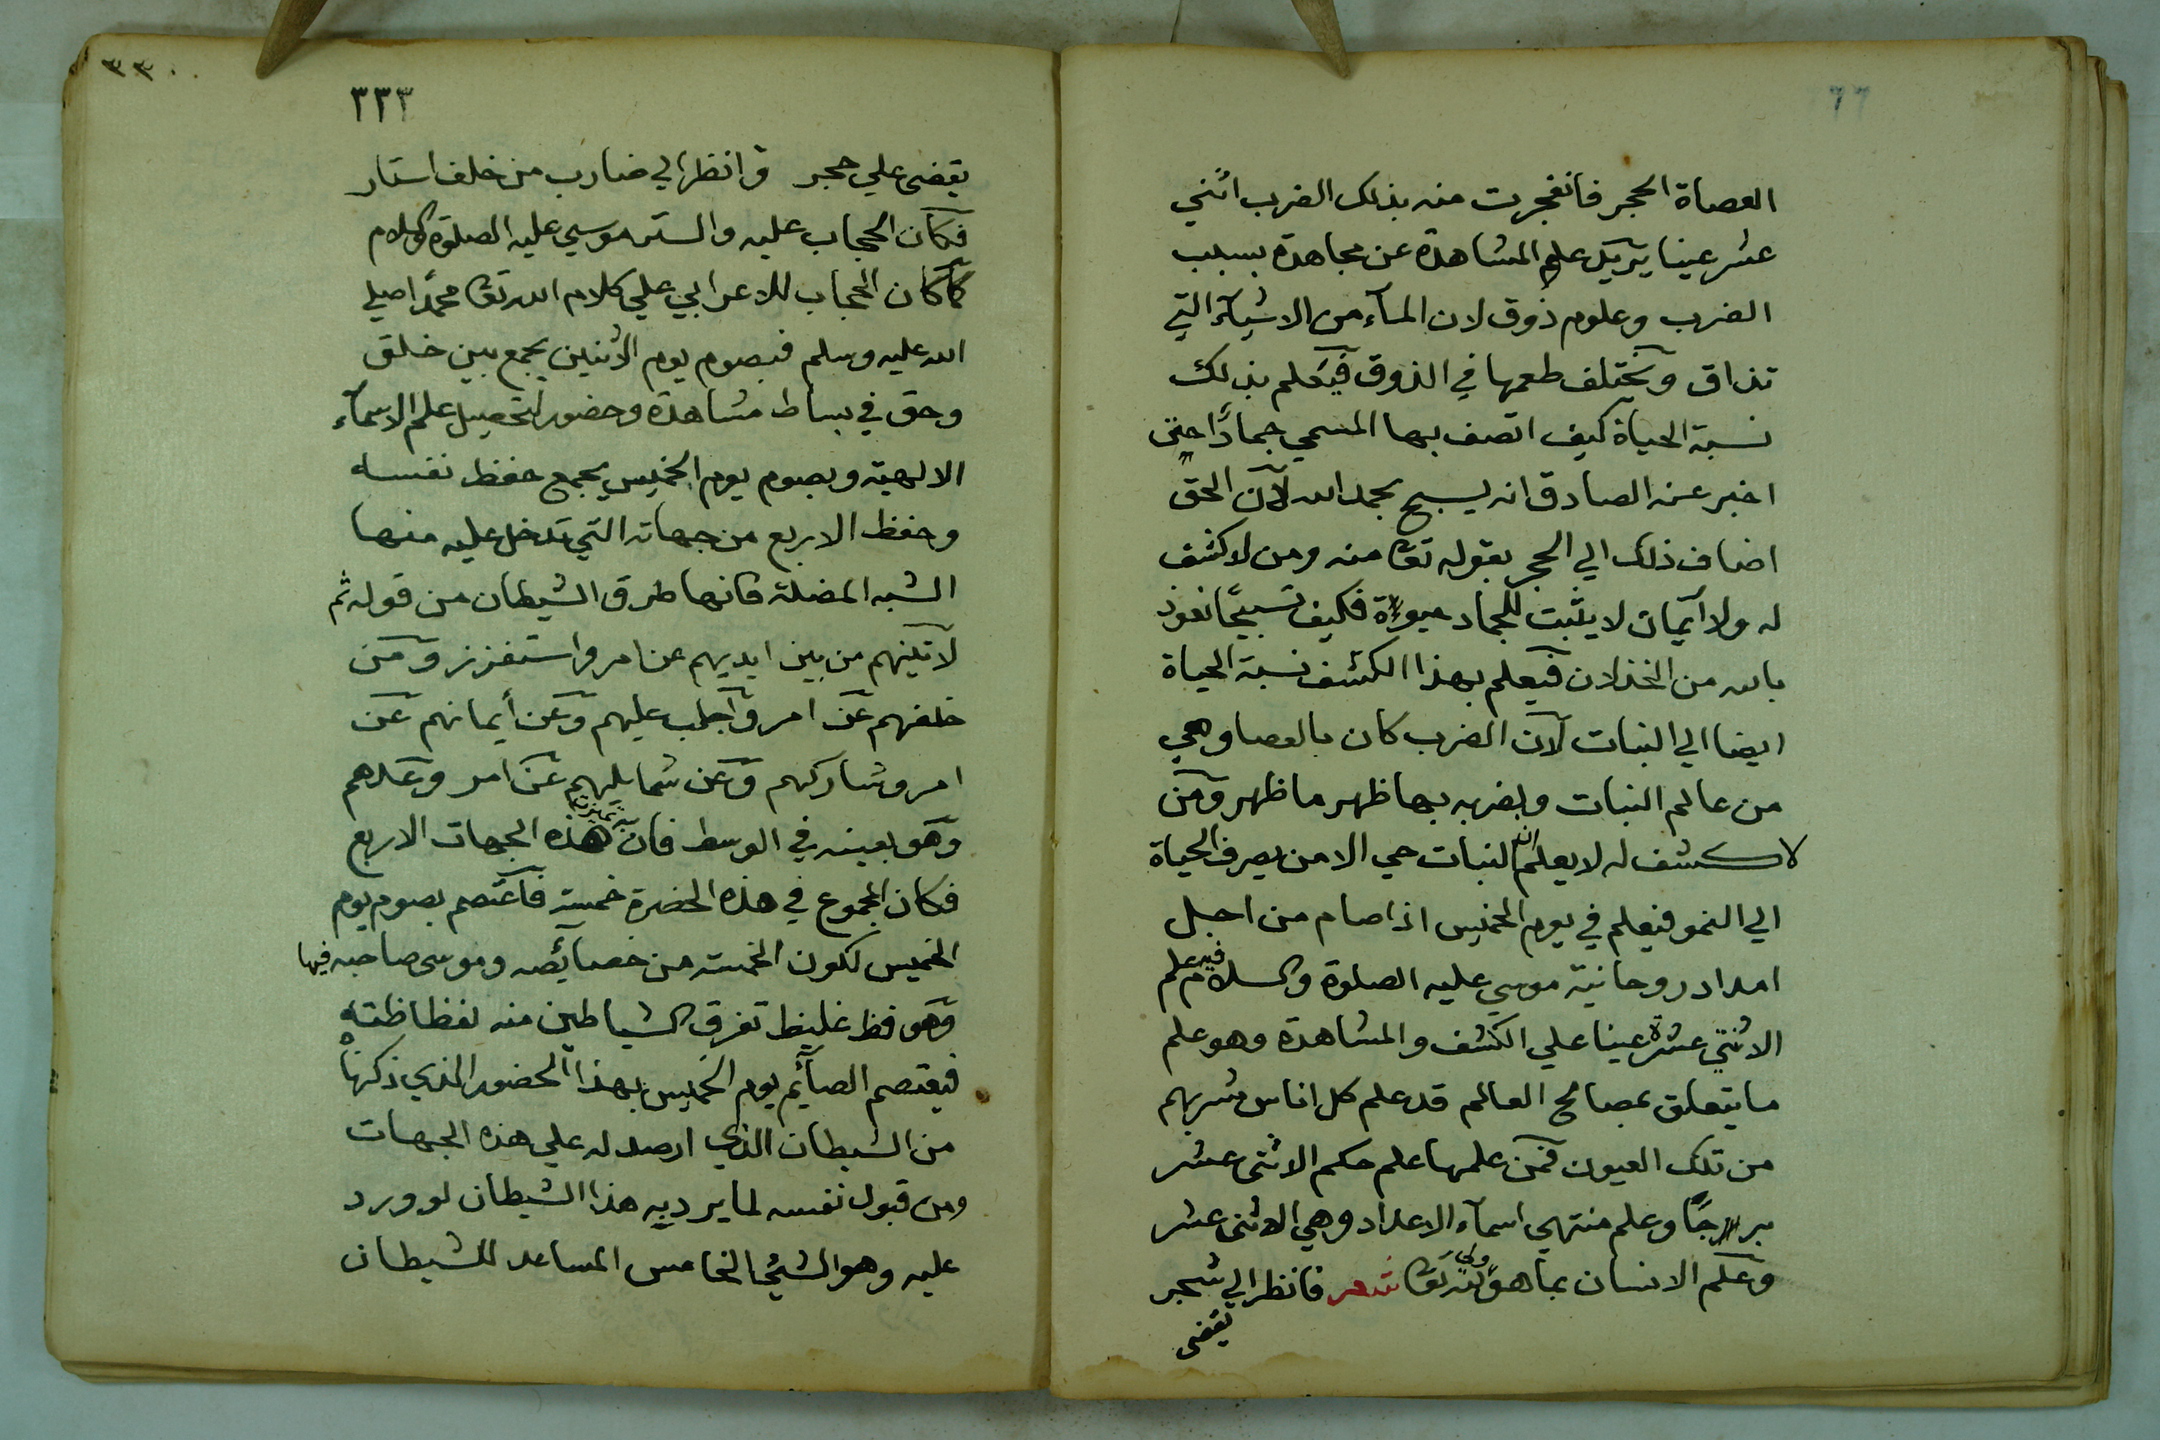 ٦٦
العصاة الحجر فانفجرت منه بذلك الضرب اثنتي
عشر عينا يريك علم المشاهدة عن مجاهدة بسبب
الضرب وعلوم ذوق لان المآء من الاشيآء التي
تذاق ويختلف طعمها في الذوق فيعلم بذلك
نسبة الحياة كيف اتصف بها المسمي جمادًا حتى
اخبر عنه الصادق انه يسبح بحمد الله لان الحق
اضاف ذلك الي الحجر بقوله تعا منه ومن لا كشف
له ولا ايمان لا يثبت للجماد حيوة فكيف تسبيحًا نعوذ
بالله من الخذلان فيعلم بهذا الكشف نسبة الحياة
ايضا الي النبات لان الضرب كان بالعصا وهي
من عالم النبات وبضربه بها ظهر ما ظهر ومن
لا كشف له لا يعلم ان النبات حي الا من يصرف الحياة
الي النمو فيعلم في يوم الخميس اذا صام من اجل
امداد روحانية موسي عليه الصلوة والسلام فيه علم
الاثنتي عشرة عينا علي الكشف والمشاهدة وهو علم
ما يتعلق بمصالح العالم قد علم كل اناس مشربهم
من تلك العيون فمن علمها علم حكم الاثنى عشر
برجًا وعلم منتهي اسمآء الاعداد وهي الاثنى عشر
وعلم الانسان بما هو ولي لله تعا شعر فانظر الي شجر
يقضى
٣٣٠
٣٣٣
يقضى علي حجر وانظر الي ضارب من خلف استار
فكان الحجاب عليه والستر موسي عليه الصلوة والسلام
كما كان الحجاب للاعرابي علي كلام الله تعا محمدًا صلي
الله عليه وسلم فبصوم يوم الاثنين يجمع بين خلق
وحق في بساط مشاهدة وحضور لتحصيل علم الاسمآء
الالهية وبصوم يوم الخميس يجمع حفظ نفسه
وحفظ الاربع من جهاته التي تدخل عليه منها
الشبه المضلة فانها طرق الشيطان من قوله ثم
لاتينهم من بين ايديهم عن امر واستفزز ومن
خلفهم عن امر واجلب عليهم وعن أيمانهم عن
امر وشاركهم وعن شمايلهم عن امر وعدهم
وهو بعينه في الوسط فان به تميزت هذه الجهات الاربع
فكان المجموع في هذه الحضرة خمسة فاعتصم بصوم يوم
الخميس لكون الخمسة من خصايصه وموسى صاحبه فيها
وهو فظ غليظ تفرق الشياطين منه لفظاظته
فيعتصم الصآيم يوم الخميس بهذا الحضور الذي ذكرناه
من الشيطان الذي ارصد له علي هذه الجهات
ومن قبول نفسه لما يرد به هذا الشيطان لو ورد
عليه وهو الشيخ الخامس المساعد للشيطان